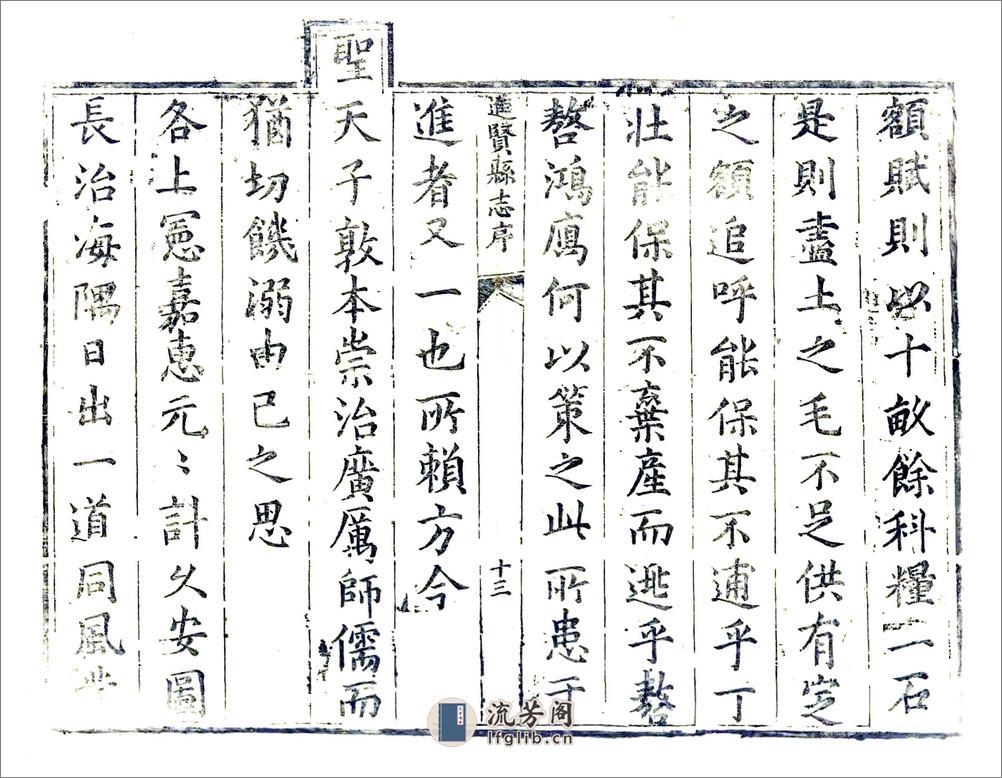 額賦則以十畝餘科糧一石
是則盡土之毛不足供有定
之額追呼能保其不逋乎丁
壯能保其不棄產而逃乎嗸
嗸鴻鴈何以策之此所患于
進賢縣志序
十三
進者又一也所賴方今
聖天子敦本崇治廣厲師儒而
猶切饑溺由己之思
各上憲嘉惠元〻計久安圖
長治海隅日出一道同風
流芳阁
lfglib.cn